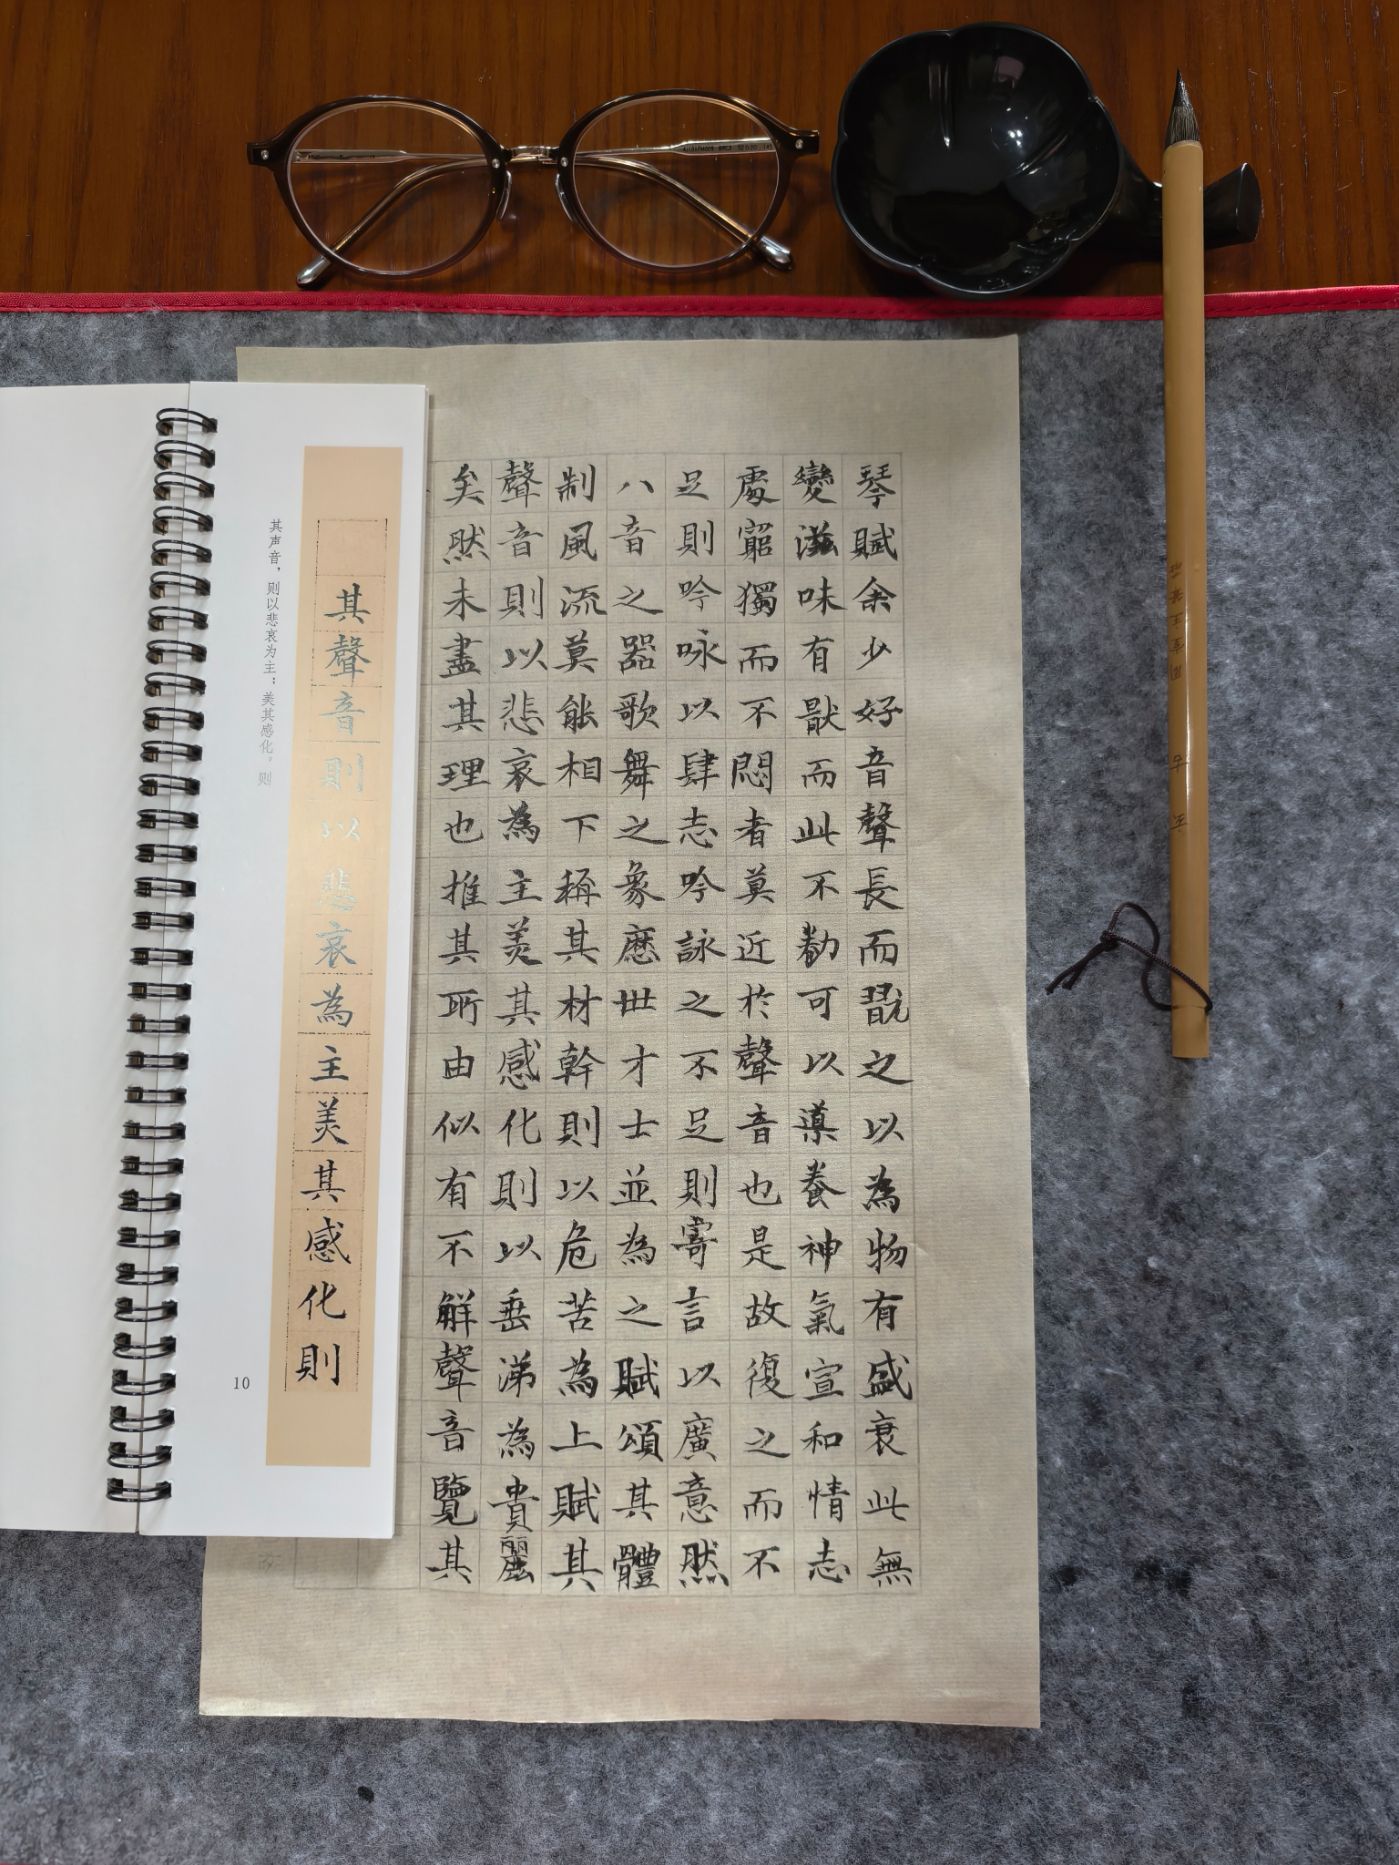 琴賦余少好音聲長而翫之以為物有盛衰此無
變滋味有猒而此不勌可以導養神氣宣和情志
處窮獨而不悶者莫近於聲音也是故復之而不
足則吟咏以肆志吟詠之不足則寄言以廣意然
八音之器歌舞之象歷世才士並為之賦頌其體
制風流莫能相下稱其材幹則以危苦為上賦其
聲音則以悲哀為主美其感化則以垂涕為貴麗
矣然未盡其理也推其所由似有不解聲音覽其
其聲音則以悲哀為主美其感化則
其声音，则以悲哀为主；美其感化，则
10